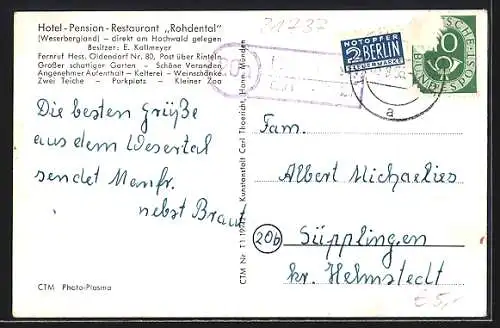 Hotel-Pension-Restaurant „Rohdental"
(Weserbergland) – direkt am Hochwald gelegen
Besitzer: E. Kallmeyer
Fernruf Hess. Oldendorf Nr. 80, Post über Rinteln
Großer schattiger Garten – Schöne Veranden
Angenehmer Aufenthalt – Kelterei – Weinschänke
Zwei Teiche – Parkplatz – Kleiner Zoo
Die besten Grüße
aus dem Wesertal
sendet Manfr.
nebst Braut
CTM Photo-Plasma
Kunstanstalt Carl Thoericht, Hann. Münden
CTM Nr. T1
21737
NOTOPFER
2 BERLIN
STEUERMARKE
10
DEUTSCHE BUNDESPOST
a
Fam.
Albert Michaelies
20b
Süpplingen
kr. Helmstedt
€5,-